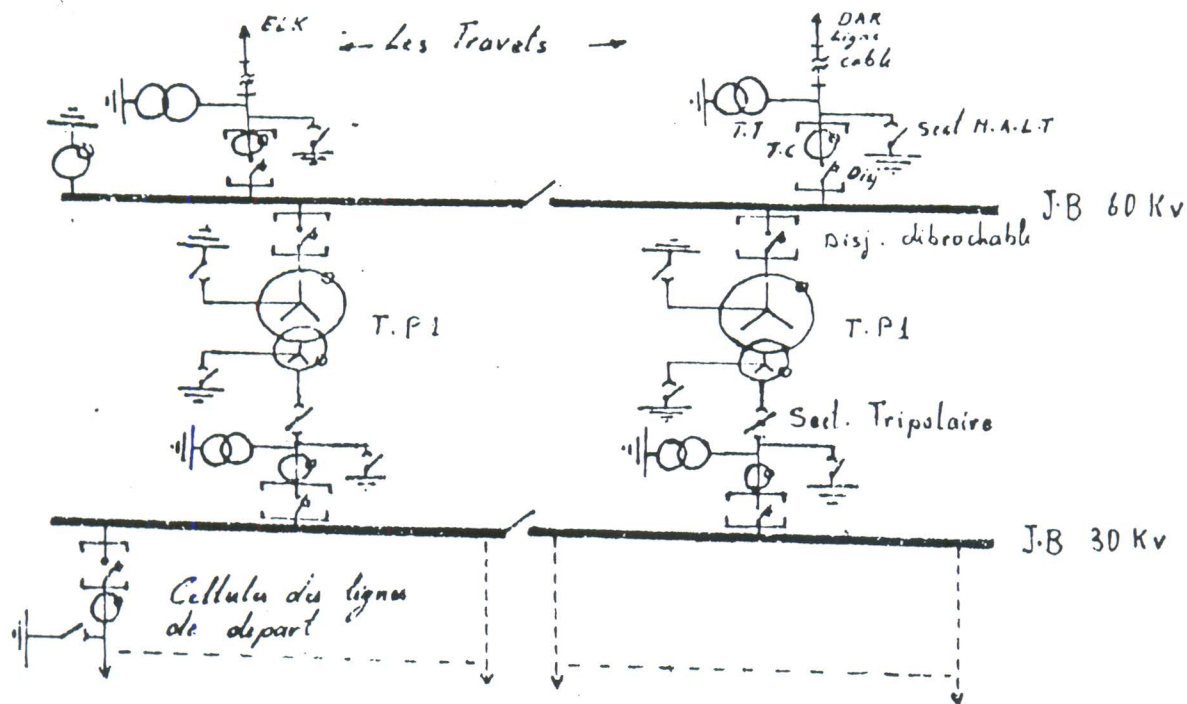 ELK
Les Travets
DAR
Ligne
cable
T.T
T.C
Sect M.A.L.T
Disj
J.B 60 Kv
Disj. dibrochable
T.P1
T.P1
Sect. Tripolaire
J.B 30 Kv
Cellules des lignes
de depart